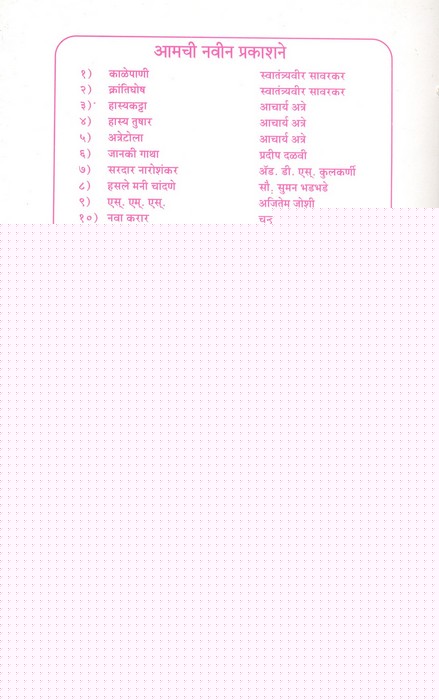 आमची नवीन प्रकाशने
१) काळेपाणी स्वातंत्र्यवीर सावरकर
२) क्रांतिघोष स्वातंत्र्यवीर सावरकर
३) हास्यकट्टा आचार्य अत्रे
४) हास्य तुषार आचार्य अत्रे
५) अत्रेटोला आचार्य अत्रे
६) जानकी गाथा प्रदीप दळवी
७) सरदार नारोशंकर ॲड. डी. एस्. कुलकर्णी
८) हसले मनी चांदणे सौ. सुमन भडभडे
९) एस्. एम्. एस्. अजितेम जोशी
१०) नवा करार